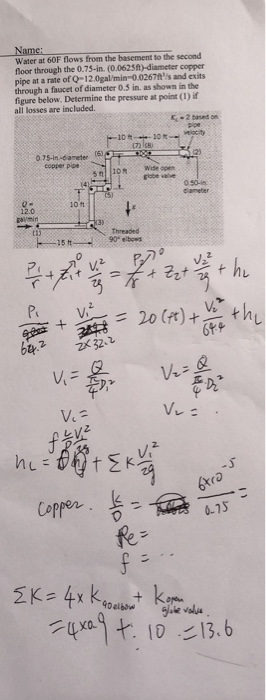 Name:
Water at 60F flows from the basement to the second
floor through the 0.75-in. (0.0625ft)-diameter copper
pipe at a rate of Q=12.0gal/min=0.0267ft³/s and exits
through a faucet of diameter 0.5 in. as shown in the
figure below. Determine the pressure at point (1) if
all losses are included.
K_L = 2 based on
pipe
velocity
10 ft
10 ft
(7) (8)
(6)
(2)
0.75-in.-diameter
copper pipe
5 ft
10 ft
Wide open
globe valve
0.50-in.
diameter
(4)
(5)
Q =
12.0
gal/min
10 ft
(3)
(1)
Threaded
90° elbows
15 ft
P₁/r + Z₁⁰ + V₁²/2g = P₂⁰/r + Z₂ + V₂²/2g + hL
P₁/62.2 + V₁²/2×32.2 = 20 (ft) + V₂²/64.4 + hL
V₁ = Q/(π/4 D₁²) V₂ = Q/(π/4 D₂²)
V₁ = V₂ = .
hL = f L/D V₁²/2g + ΣK V₁²/2g
Copper. k/D = 6×10⁻⁵/0.75 =
Re =
f = ..
ΣK = 4× K90elbow + Kopen globe valve
= 4×0.9 + 10 = 13.6